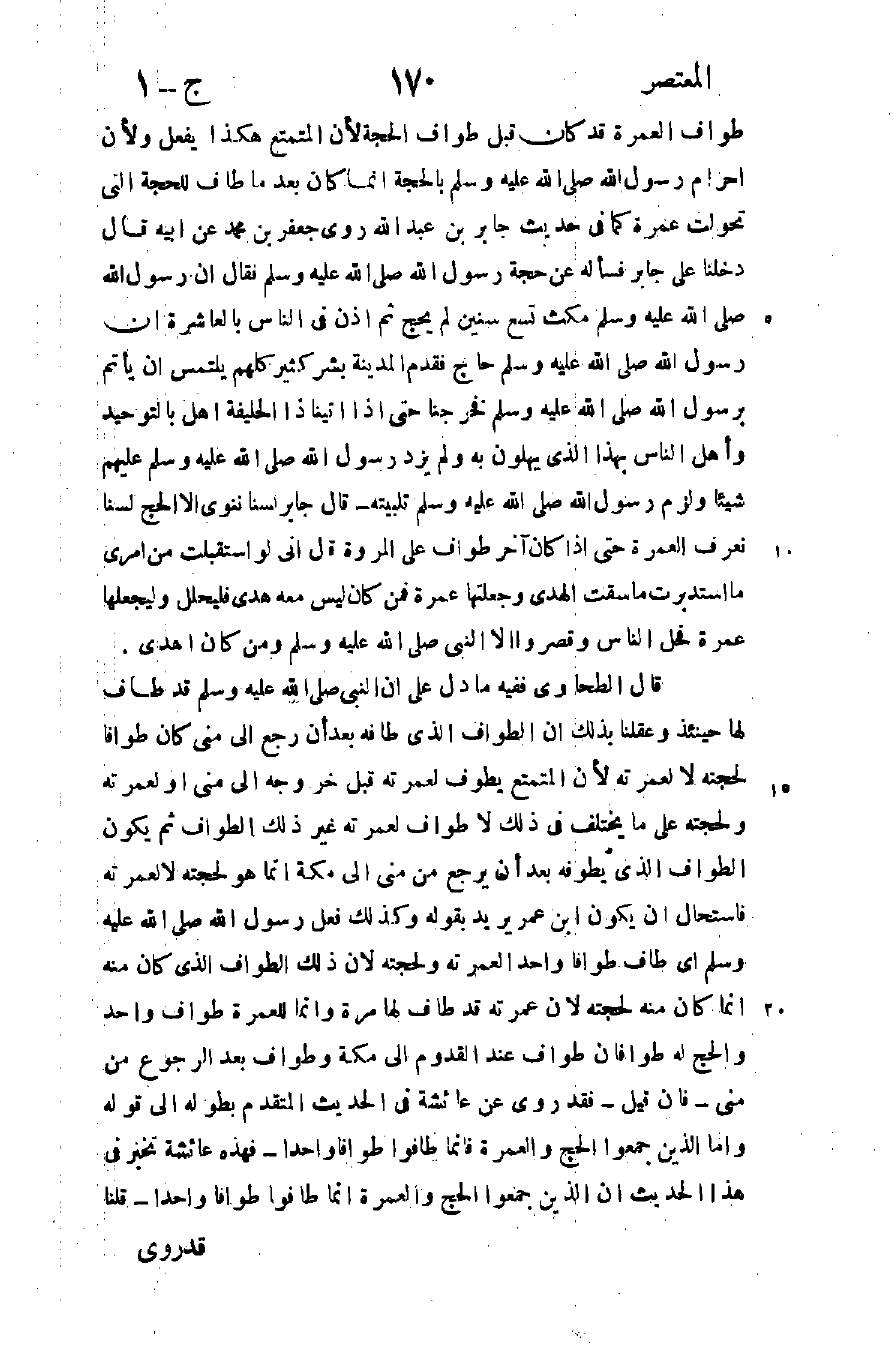 المعتصر ١٧٠ ج - ١
طواف العمرة قد كان قبل طواف الحجة لأن المتمتع هكذا يفعل ولأن
احرام رسول الله صلى الله عليه وسلم بالحجة انما كان بعد ما طاف للحجة التى
تحولت عمرة كما فى حديث جابر بن عبد الله روى جعفر بن محمد عن ابيه قال
دخلنا على جابر فسأله عن حجة رسول الله صلى الله عليه وسلم فقال ان رسول الله
صلى الله عليه وسلم مكث تسع سنين لم يحج ثم اذن فى الناس بالعاشرة ان ٥
رسول الله صلى الله عليه وسلم حاج فقدم المدينة بشر كثير كلهم يلتمس ان يأتم
برسول الله صلى الله عليه وسلم فخرجنا حتى اذا اتينا ذا الحليفة اهل بالتوحيد
وأهل الناس بهذا الذى يهلون به ولم يزد رسول الله صلى الله عليه وسلم عليهم
شيئا ولزم رسول الله صلى الله عليه وسلم تلبيته - قال جابر لسنا ننوى الا الحج لسنا
نعرف العمرة حتى اذا كان آخر طواف على المروة قال انى لو استقبلت من امرى ١٠
ما استدبرت ما سقت الهدى وجعلتها عمرة فمن كان ليس معه هدى فليحلل وليجعلها
عمرة فحل الناس وقصروا الا النبى صلى الله عليه وسلم ومن كان اهدى .
قال الطحاوى ففيه ما دل على ان النبى صلى الله عليه وسلم قد طاف
لها حينئذ وعقلنا بذلك ان الطواف الذى طافه بعد أن رجع الى منى كان طوافا
لحجته لا لعمرته لأن المتمتع يطوف لعمرته قبل خروجه الى منى او لعمرته ١٥
ولحجته على ما يختلف فى ذلك لا طواف لعمرته غير ذلك الطواف ثم يكون
الطواف الذى يطوفه بعد أن يرجع من منى الى مكة انما هو لحجته لا لعمرته
فاستحال ان يكون ابن عمر يريد بقوله وكذلك فعل رسول الله صلى الله عليه
وسلم اى طاف طوافا واحدا لعمرته ولحجته لان ذلك الطواف الذى كان منه
انما كان منه لحجته لان عمرته قد طاف لها مرة وانما للعمرة طواف واحد ٢٠
والحج له طوافان طواف عند القدوم الى مكة وطواف بعد الرجوع من
منى - فان قيل - فقد روى عن عائشة فى الحديث المتقدم بطوله الى قوله
واما الذين جمعوا الحج والعمرة فانما طافوا طوافا واحدا - فهذه عائشة تخبر فى
هذا الحديث ان الذين جمعوا الحج والعمرة انما طافوا طوافا واحدا - قلنا
قد روى